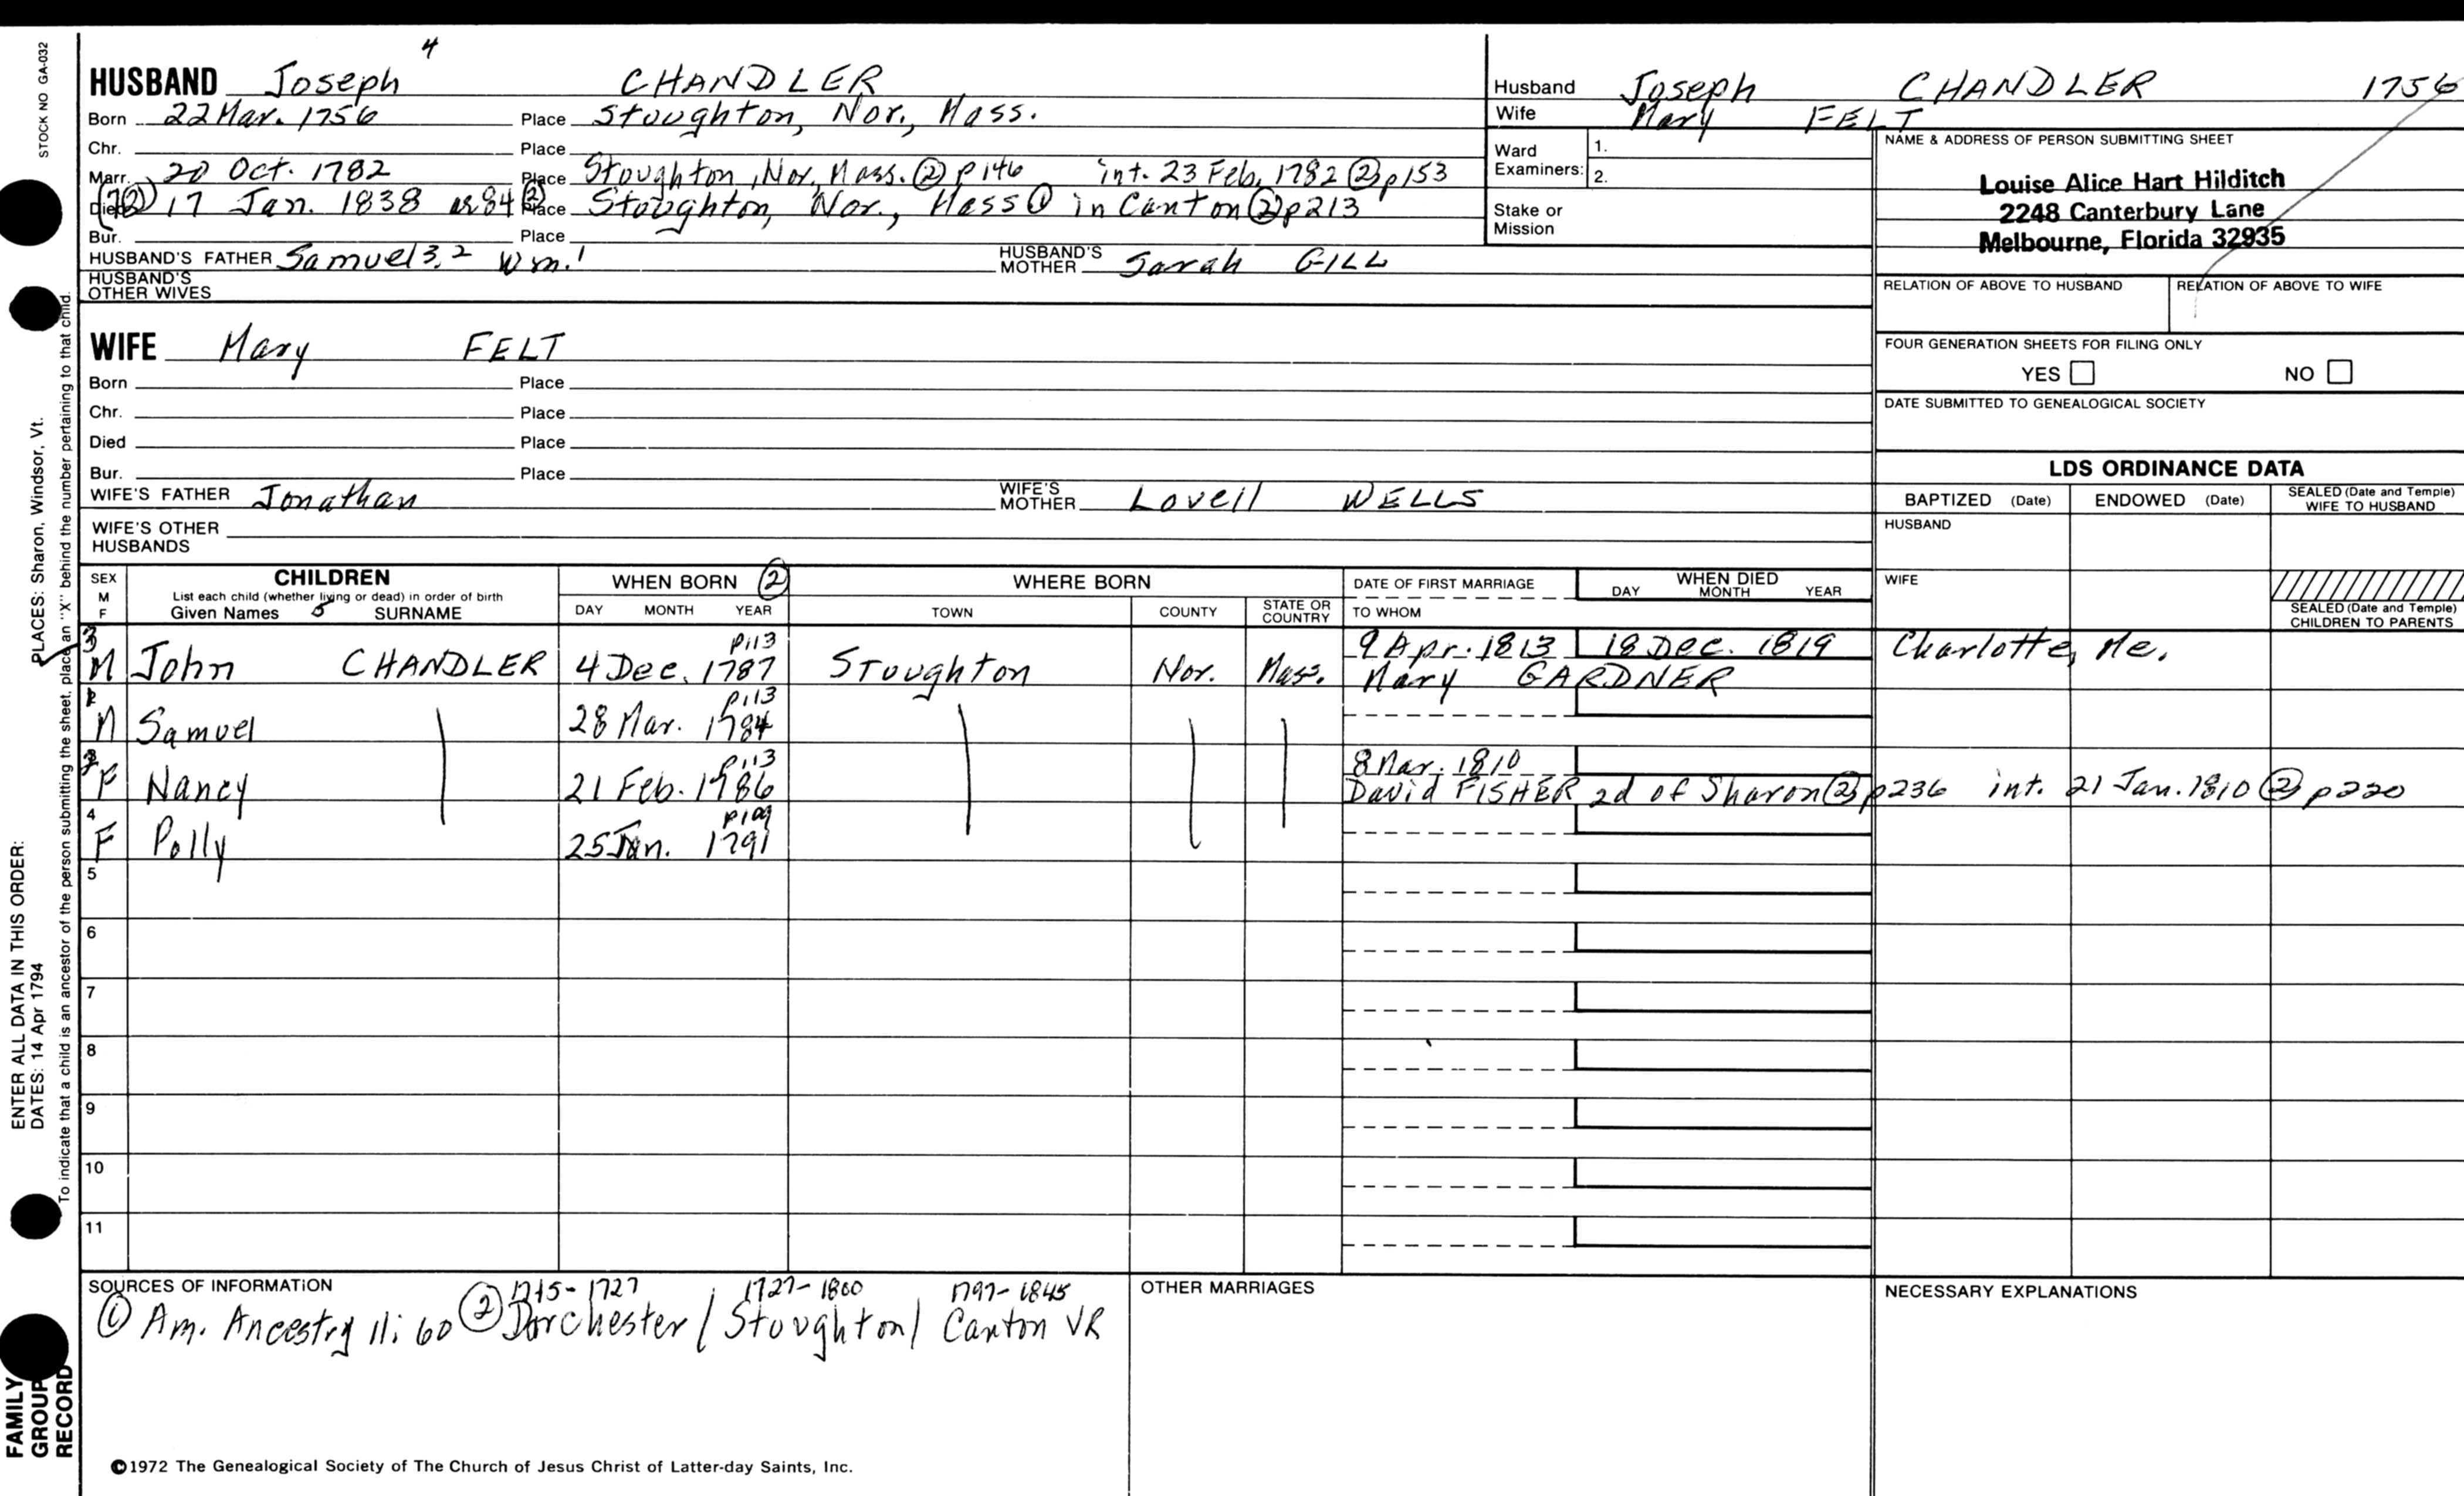 STOCK NO GA-032
HUSBAND Joseph 4 CHANDLER
Born 22 Mar. 1756 Place Stoughton, Nor., Mass.
Chr. Place
Marr. 20 Oct. 1782 Place Stoughton, Nor, Mass. ② p146 int. 23 Feb. 1782 ② p153
Died 17 Jan. 1838 84 ② Place Stoughton, Nor., Mass ① in Canton ② p213
Bur. Place
HUSBAND'S FATHER Samuel 3,2 Wm.1 HUSBAND'S MOTHER Sarah GILL
HUSBAND'S OTHER WIVES
Husband Joseph CHANDLER 1756
Wife Mary FELT
Ward Examiners: 1.
2.
Stake or Mission
NAME & ADDRESS OF PERSON SUBMITTING SHEET
Louise Alice Hart Hilditch
2248 Canterbury Lane
Melbourne, Florida 32935
RELATION OF ABOVE TO HUSBAND RELATION OF ABOVE TO WIFE
FOUR GENERATION SHEETS FOR FILING ONLY
YES NO
DATE SUBMITTED TO GENEALOGICAL SOCIETY
WIFE Mary FELT
Born Place
Chr. Place
Died Place
Bur. Place
WIFE'S FATHER Jonathan WIFE'S MOTHER Lovell WELLS
WIFE'S OTHER HUSBANDS
LDS ORDINANCE DATA
BAPTIZED (Date) ENDOWED (Date) SEALED (Date and Temple) WIFE TO HUSBAND
HUSBAND
WIFE
SEALED (Date and Temple) CHILDREN TO PARENTS
SEX M F
CHILDREN
List each child (whether living or dead) in order of birth
Given Names 5 SURNAME
WHEN BORN ②
DAY MONTH YEAR
WHERE BORN
TOWN COUNTY STATE OR COUNTRY
DATE OF FIRST MARRIAGE
TO WHOM
WHEN DIED
DAY MONTH YEAR
3 p113 9 Apr. 1813 18 Dec. 1819 Charlotte, Me.
M John CHANDLER 4 Dec. 1787 Stoughton Nor. Mass. Mary GARDNER
p113
M Samuel 28 Mar. 1784
p113 8 Mar. 1810
F Nancy 21 Feb. 1786 David FISHER 2d of Sharon ② p236 int. 21 Jan. 1810 ② p220
4 p109
F Polly 25 Jan. 1791
5
6
7
8
9
10
11
SOURCES OF INFORMATION
1715-1727 1727-1800 1797-1845
① Am. Ancestry 11:60 ② Dorchester / Stoughton / Canton VR
OTHER MARRIAGES
NECESSARY EXPLANATIONS
©1972 The Genealogical Society of The Church of Jesus Christ of Latter-day Saints, Inc.
ENTER ALL DATA IN THIS ORDER:
DATES: 14 Apr 1794 PLACES: Sharon, Windsor, Vt.
To indicate that a child is an ancestor of the person submitting the sheet, place an "X" behind the number pertaining to that child.
FAMILY
GROUP
RECORD